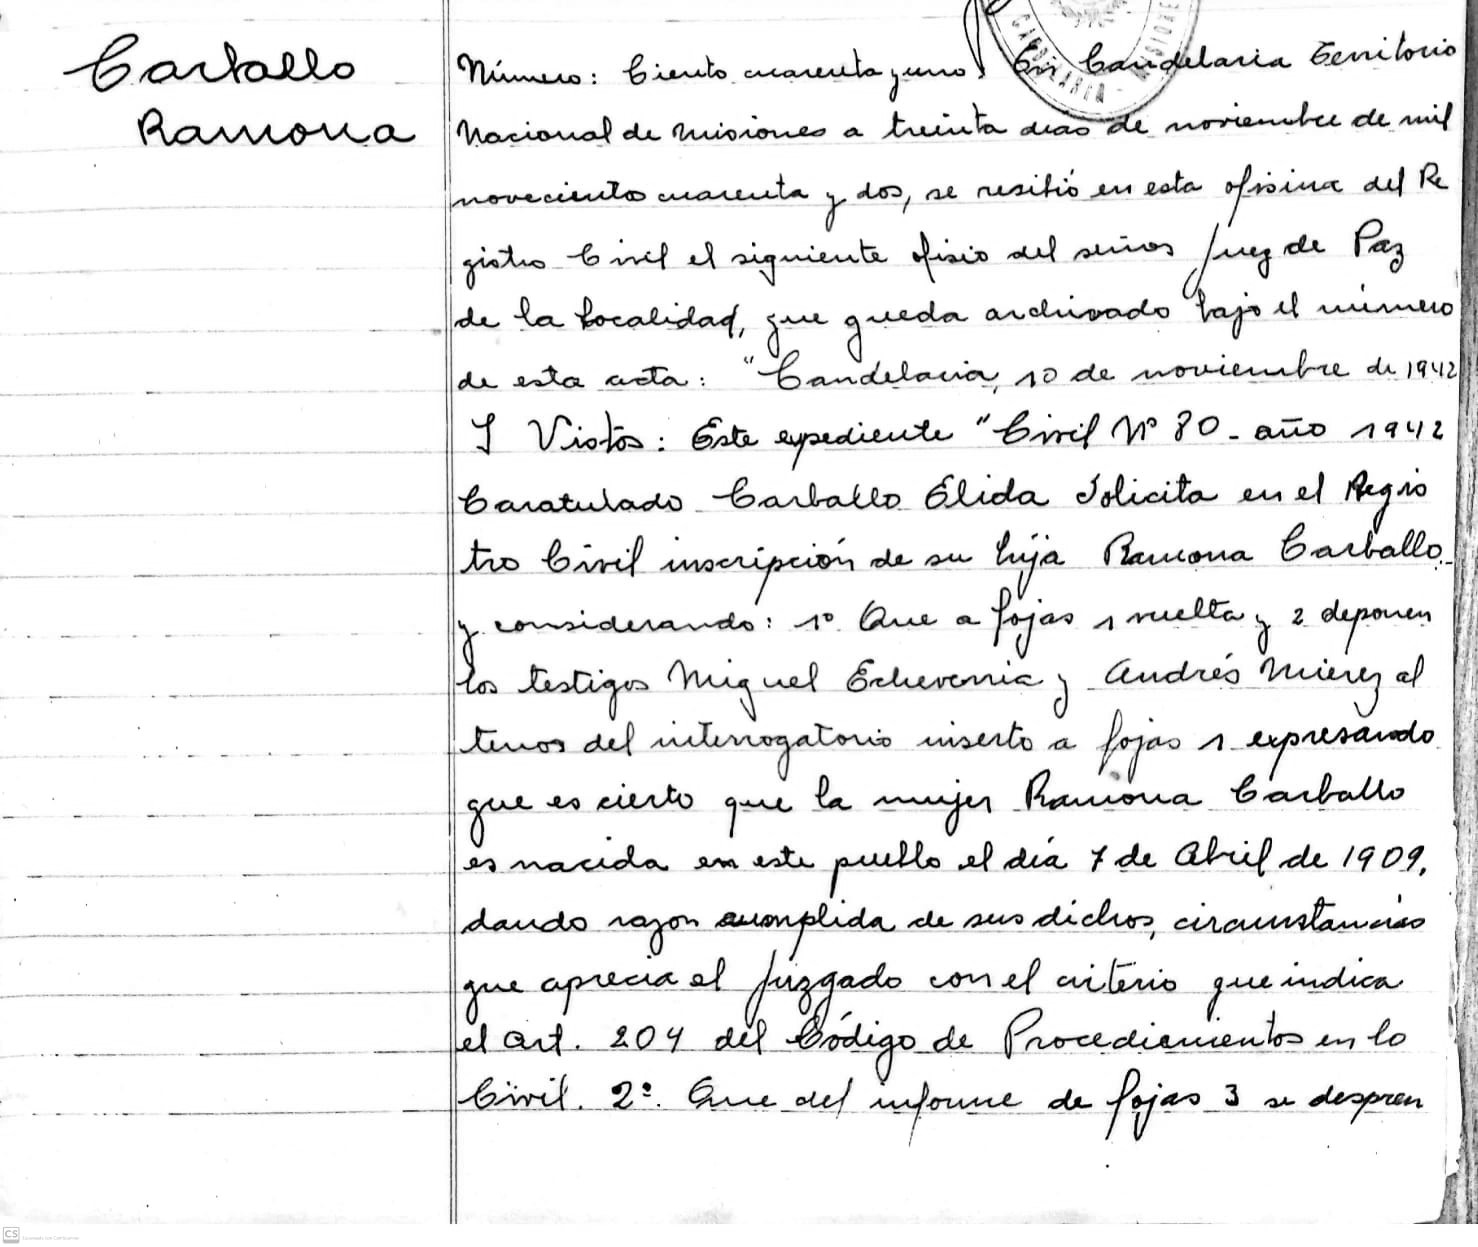 Carballo
Ramona
CANDELARIA - MISIONES
Número: Ciento cuarenta y uno. En Candelaria Territorio
Nacional de Misiones a treinta dias de noviembre de mil
noveciento cuarenta y dos, se resibió en esta ofisina del Re
gistro Civil el siguiente ofisio del señor Juez de Paz
de la Localidad, que queda archivado bajo el número
de esta acta: "Candelaria, 10 de noviembre de 1942
Y Vistos: Este expediente "Civil Nº 80 - año 1942
Caratulado Carballo Élida Solicita en el Regis
tro Civil inscripción de su hija Ramona Carballo
y considerando: 1º Que a fojas 1 vuelta y 2 deponen
los testigos Miguel Echeverria y Andrés Mierez al
tenor del interrogatorio inserto a fojas 1 expresando
que es cierto que la mujer Ramona Carballo
es nacida en este pueblo el día 7 de Abril de 1909,
dando razon cumplida de sus dichos, circunstancias
que aprecia el Juzgado con el criterio que indica
el art. 204 del Código de Procedimientos en lo
Civil. 2º. Que del informe de fojas 3 se despren
CS